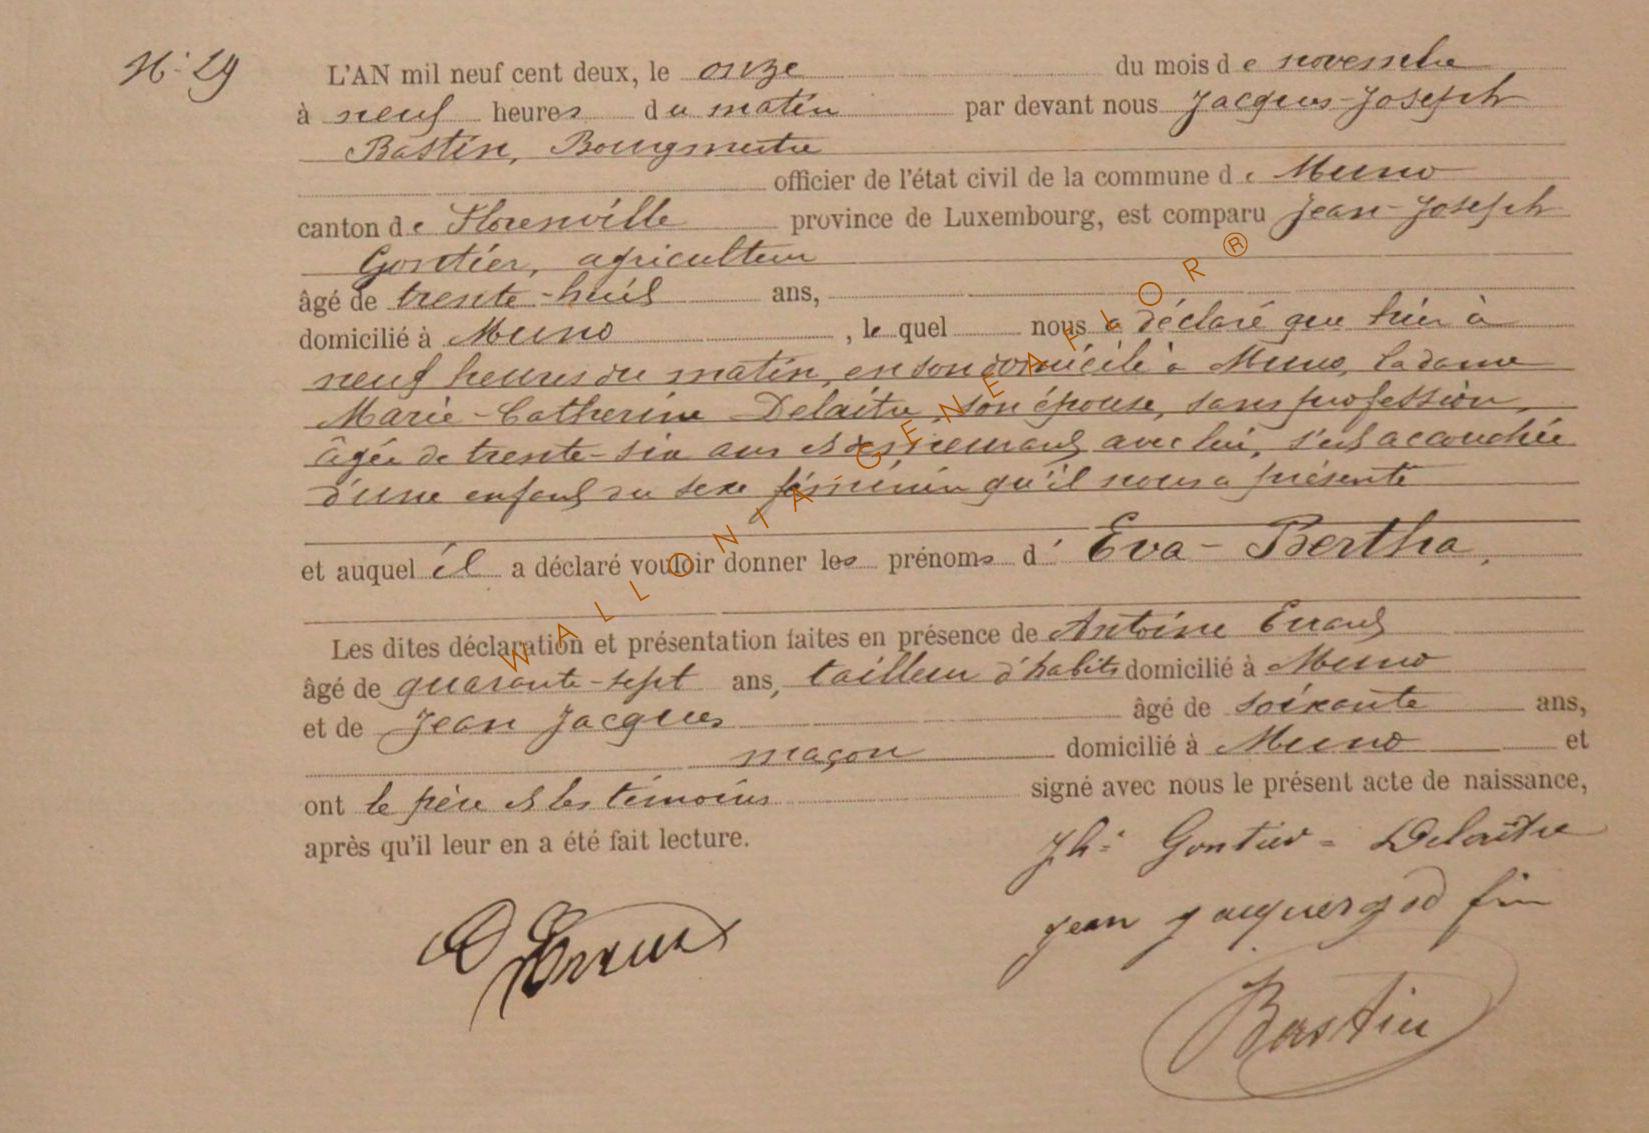 N° 29
L'AN mil neuf cent deux, le onze du mois de novembre
à neuf heures du matin par devant nous Jacques-Joseph
Bastin, Bourgmestre
officier de l'état civil de la commune de Muno
canton de Florenville province de Luxembourg, est comparu Jean-Joseph
Gontier, agriculteur
âgé de trente-huit ans,
domicilié à Muno, le quel nous a déclaré que hier à
neuf heures du matin, en son domicile à Muno, la dame
Marie-Catherine Delaitre, son épouse, sans profession,
âgée de trente-six ans et demeurant avec lui, s'est accouchée
d'une enfant du sexe féminin qu'il nous a présenté
et auquel il a déclaré vouloir donner les prénoms d' Eva-Bertha,
Les dites déclaration et présentation faites en présence de Antoine Eraud
âgé de quarante-sept ans, tailleur d'habits domicilié à Muno
et de Jean Jacques âgé de soixante ans,
maçon domicilié à Muno et
ont le père et les témoins signé avec nous le présent acte de naissance,
après qu'il leur en a été fait lecture.
Jh. Gontier-Delaître
jean jacques
Bastin
WALLONIA-GENEAFLOR®